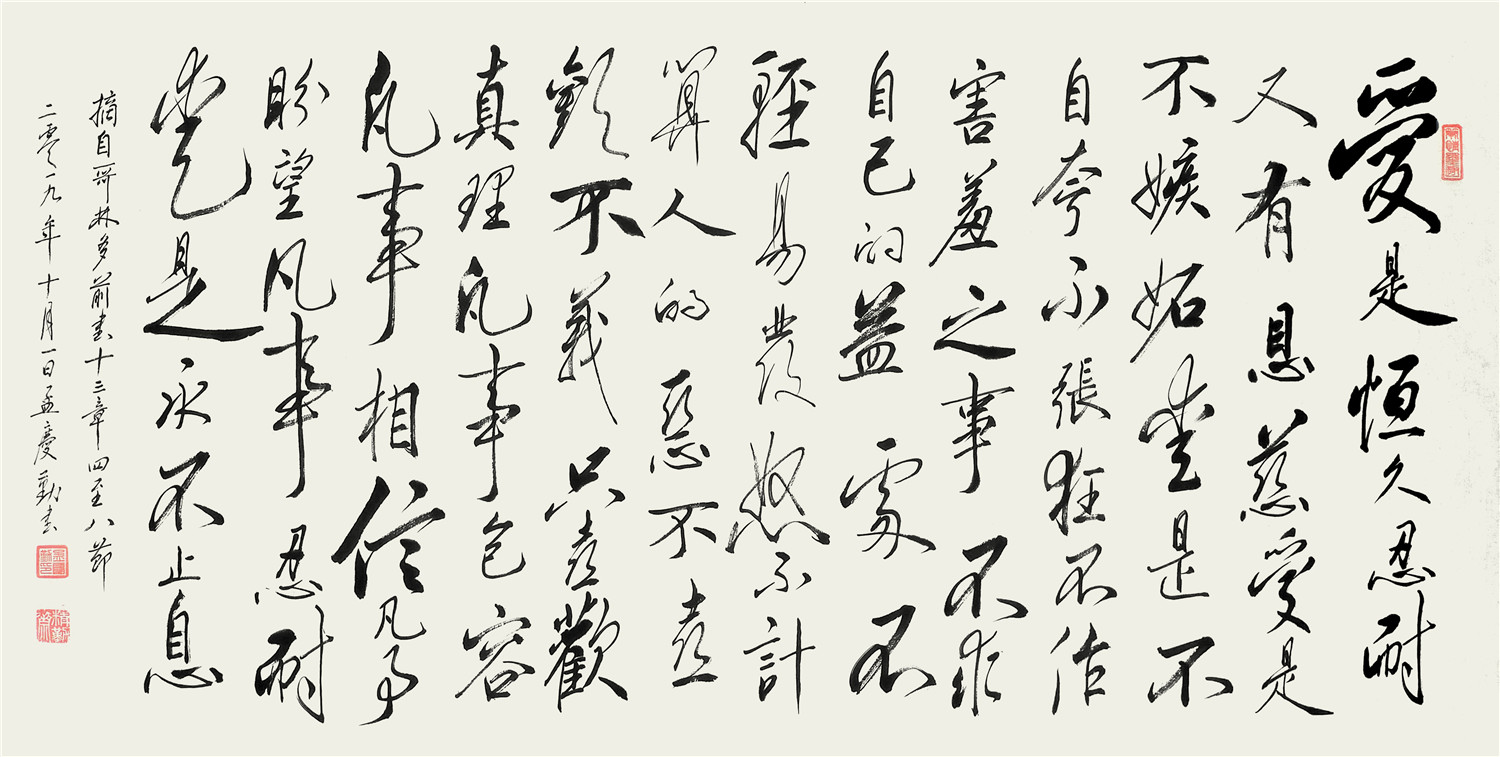 愛是恒久忍耐
又有恩慈愛是
不嫉妬愛是不
自夸不張狂不作
害羞之事不求
自己的益處不
輕易發怒不計
算人的惡不喜
歡不義只喜歡
真理凡事包容
凡事相信凡事
盼望凡事忍耐
愛是永不止息
摘自哥林多前書十三章四至八節
二零一九年十月一日孟慶勤書